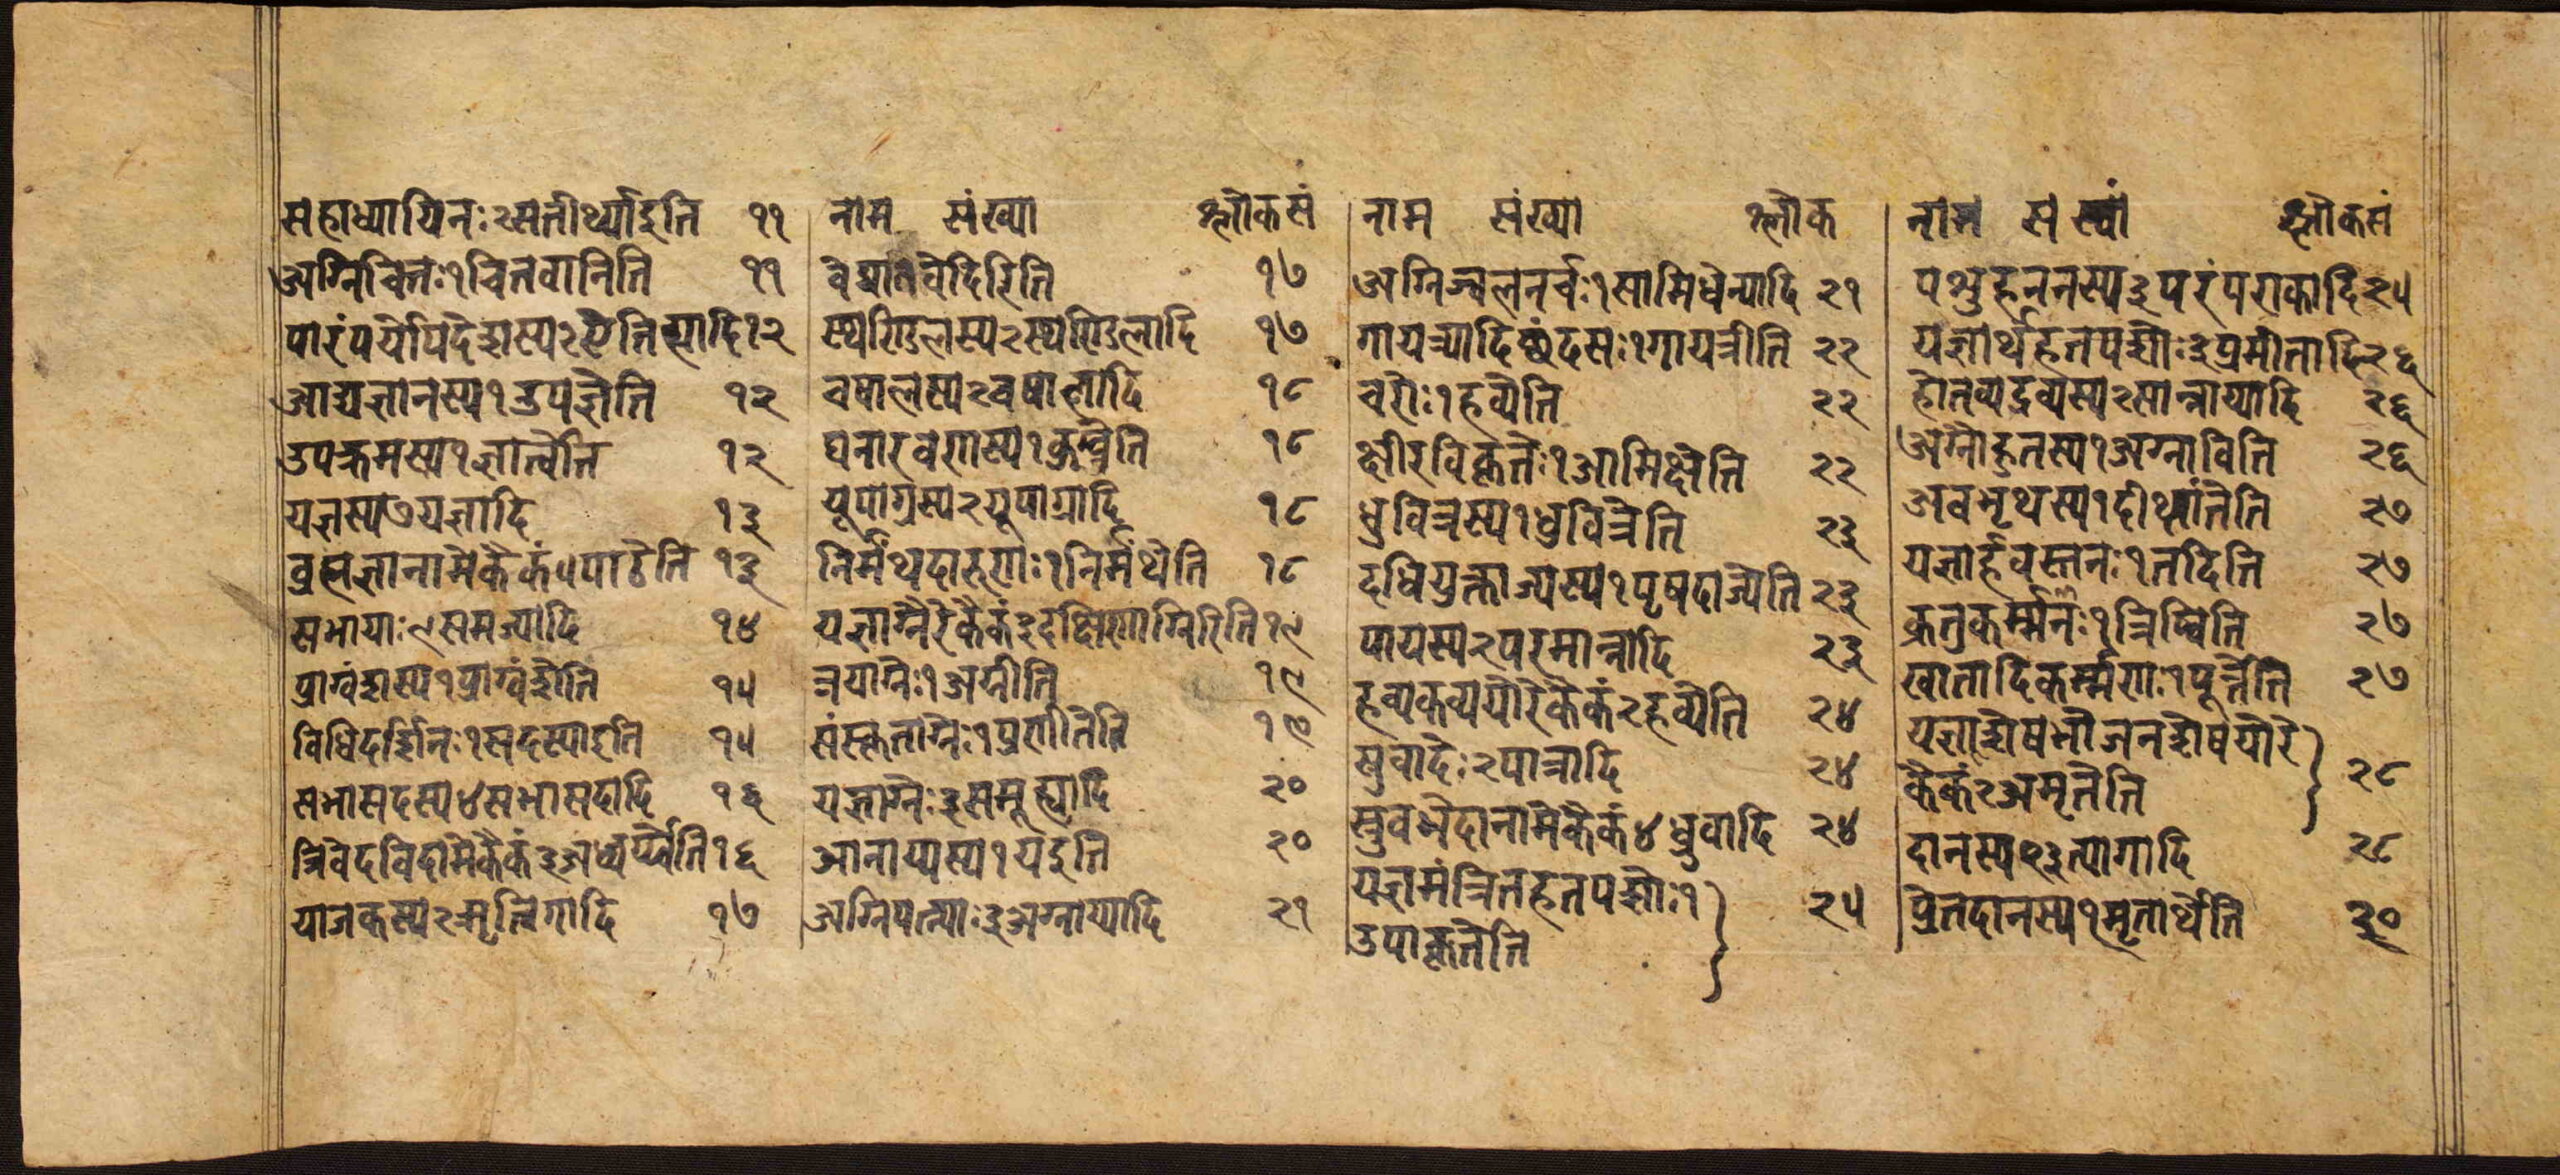 सहाध्यायिनः२सतीर्थ्याइति ११
अग्निचितः१चितवानिति ११
पारंपर्योपदेशस्य२ऐतिह्यादि१२
आद्यज्ञानस्य१उपज्ञेति १२
उपक्रमस्य१ज्ञात्वेति १२
यज्ञस्य७यज्ञादि १३
ब्रह्मज्ञानामेकैकं५पाठेति १३
सभायाः९समज्यादि १४
प्राग्वंशस्य१प्राग्वंशेति १५
विधिदर्शिनः१सदस्याइति १५
सभासदस्य४सभासदादि १६
त्रिवेदविदामेकैकं३अध्वर्य्वेति१६
याजकस्य२मृत्विगादि १७
नाम संख्या श्लोकसं
वेद्या१वेदिरिति १७
स्थण्डिलस्य२स्थण्डिलादि १७
चषालस्य२चषालादि १८
घनावरणस्य१कुम्बेति १८
यूपाग्रस्य२यूपाग्रादि १८
निर्मंथदारुणः१निर्मंथेति १८
यज्ञाग्नेरेकैकं३दक्षिणाग्निरिति१९
त्रयाग्नेः१अग्नीति १९
संस्कृताग्नेः१प्रणीतेति १९
यज्ञाग्नेः३समूह्यादि २०
आनाय्यस्य१यइति २०
अग्निपत्न्याः३अग्नाय्यादि २१
नाम संख्या श्लोक
अग्निज्वलनर्चः१सामिधेन्यादि २१
गायत्र्यादिछंदसः१गायत्रीति २२
चरोः१हव्येति २२
क्षीरविकृतेः१आमिक्षेति २२
ध्रुवित्रस्य१ध्रुवित्रेति २३
दधियुक्ताज्यस्य१पृषदाज्येति२३
पायस्य२परमान्नादि २३
हव्यकव्ययोरेकैकं२हव्येति २४
स्रुवादेः२पात्रादि २४
स्रुवभेदानामेकैकं४ध्रुवादि २४
यज्ञमंत्रितहतपशोः१ २५
उपाकृतेति
नाम संख्या श्लोकसं
पशुहननस्य३परंपराकादि२५
यज्ञार्थहतपशोः३प्रमीतादि२६
होतव्यद्रव्यस्य२सान्नाय्यादि २६
अग्नौहुतस्य१अग्नाविति २६
अवभृथस्य१दीक्षांतेति २७
यज्ञार्हवस्तुनः१तदिति २७
क्रतुकर्म्मनः१त्रिष्विति २७
खातादिकर्म्मणः१पूर्त्तेति २७
यज्ञशेषभोजनशेषयोरे
कैकं२अमृतेति २८
दानस्य१३त्यागादि २८
प्रेतदानस्य१मृतार्थेति ३०